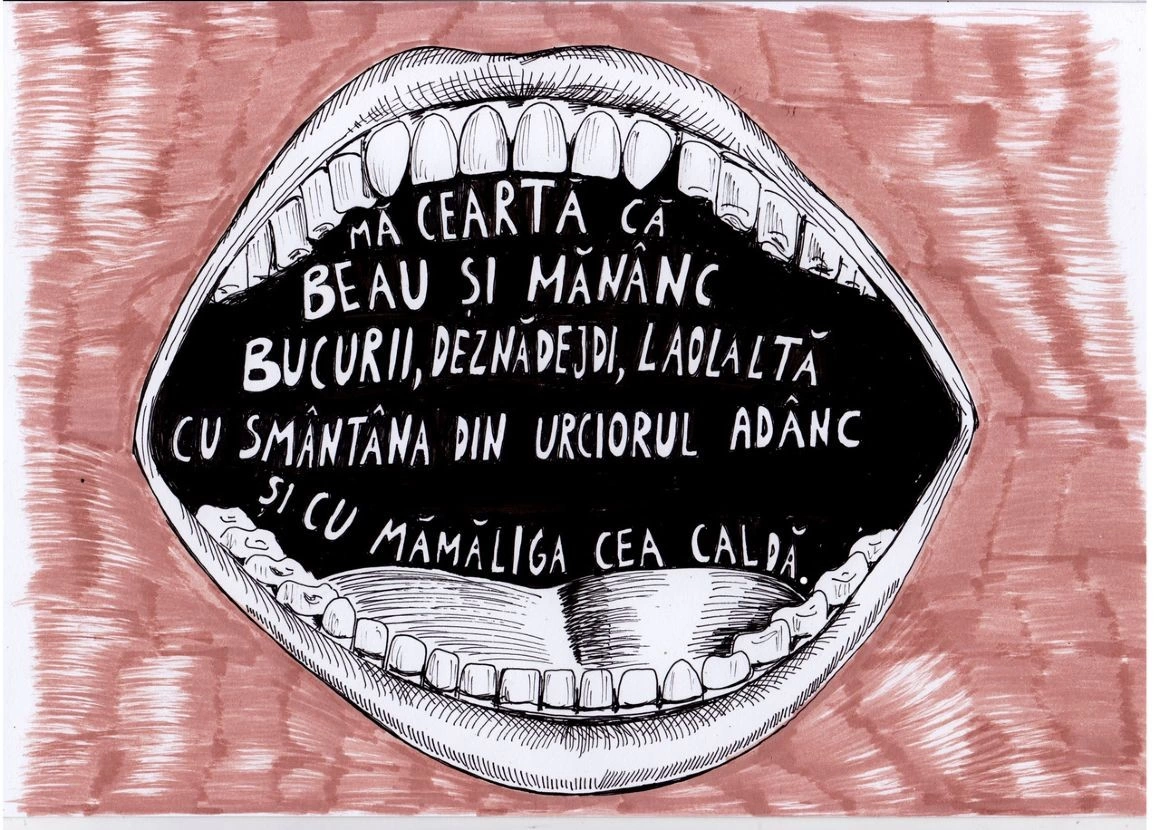 MĂ CEARTĂ CĂ
BEAU ȘI MĂNÂNC
BUCURII, DEZNĂDEJDI, LAOLALTĂ
CU SMÂNTÂNA DIN URCIORUL ADÂNC
ȘI CU MĂMĂLIGA CEA CALDĂ.